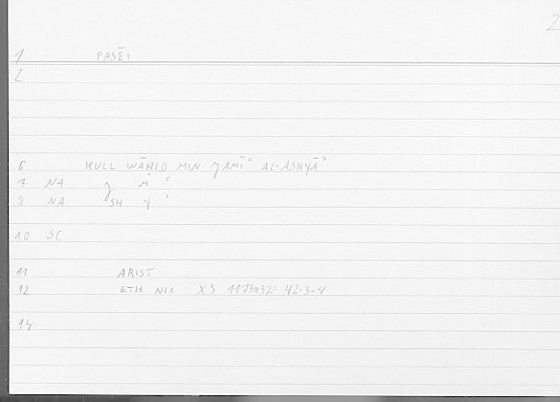 2
1 PASĒI
2
6 KULL WĀḤID MIN ǦAMĪʿ AL-ASHYĀʾ
7 NA ǧ m ʿ
8 NA SH Y ʾ
10 SC
11 ARIST
12 ETH NIC X3 1173a32: 42-3-4
14